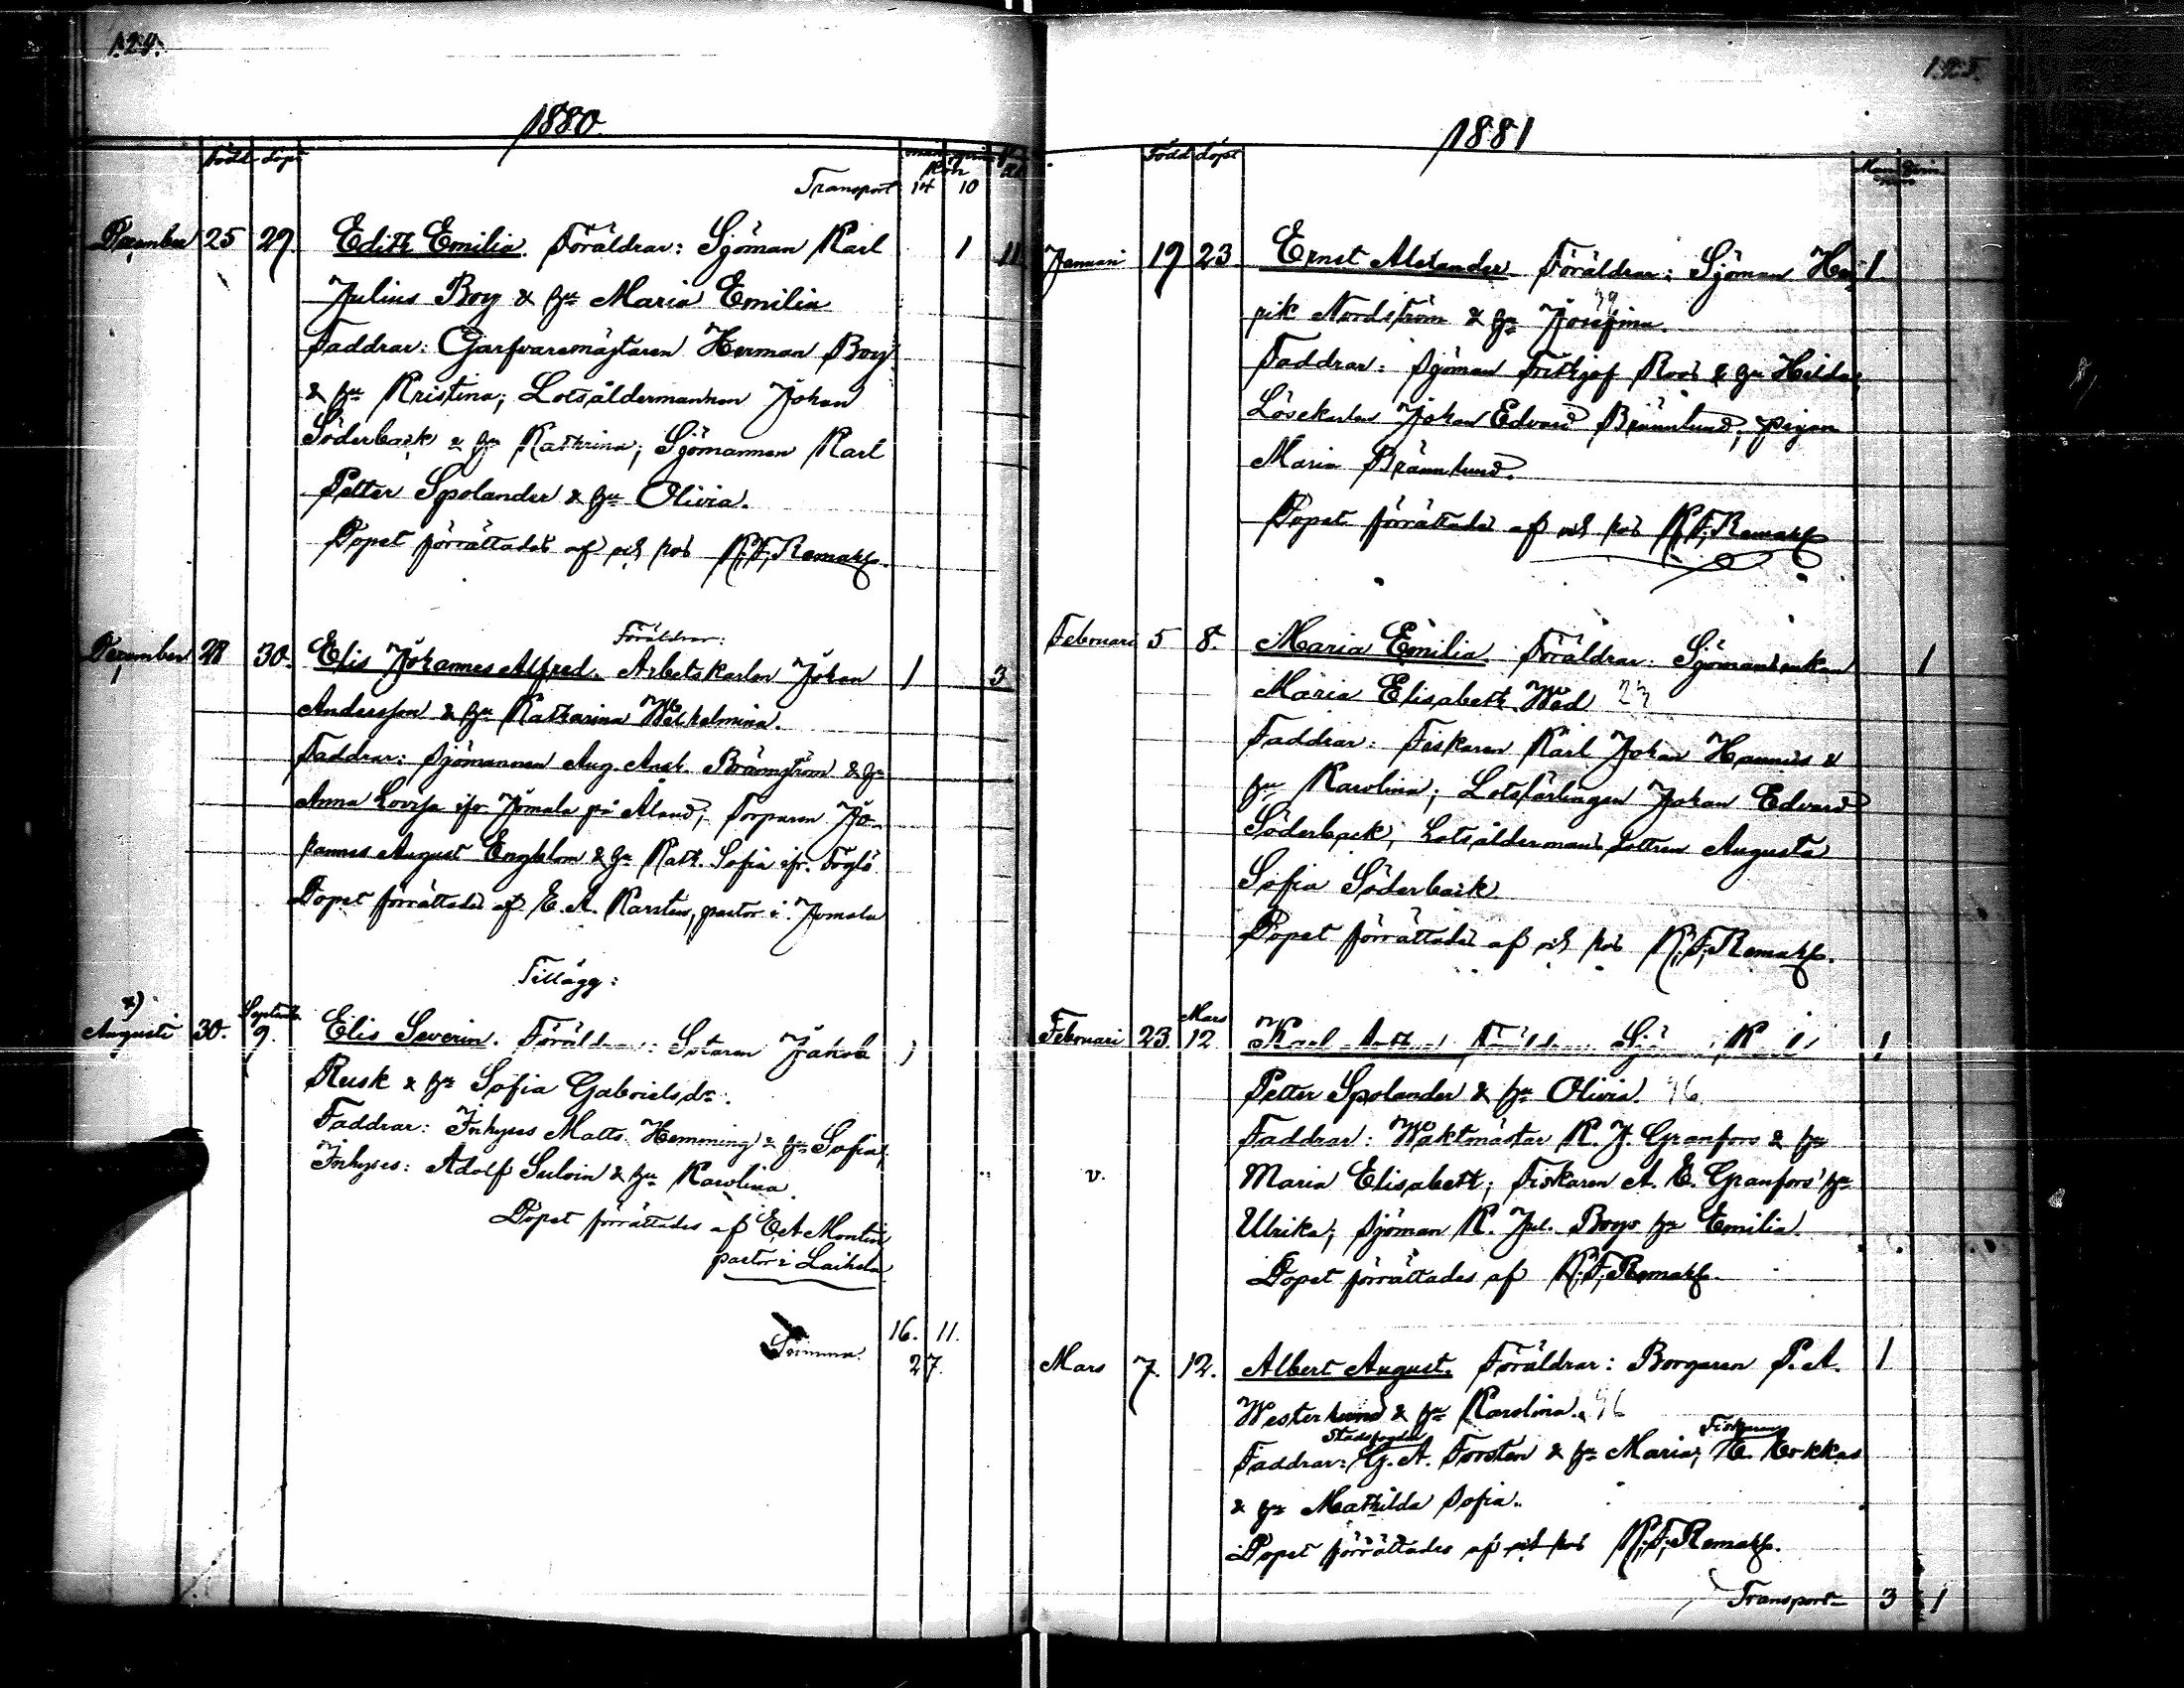 124.
1880
Född döpt
Transport 14 10
December 25 29. Edith Emilia. Föräldrar: Sjöman Karl 1 11
Julius Boy & hu Maria Emilia
Faddrar: Garfvaremästaren Herman Boy
& hu Kristina; Lotsåldermannen Johan
Söderback & hu Kathrina; Sjömannen Karl
Petter Spolander & hu Olivia.
Dopet förrättades af
Föräldrar:
December 28 30. Elis Johannes Alfred. Arbetskarlen Johan 1 3
Andersson & hu Katharina Wilhelmina.
Faddrar: Sjömannen Aug. Brännström & hu
Anna Lovisa ifr. Jomala på Åland; Torparen Jo-
hannes August Engblom & hu Kath. Sofia ifr. Föglö
Dopet förrättades af E. A. Karsten, pastor i Jomala
Tillägg:
x) Septemb.
Augusti 30. 9. Elis Severin. Föräldrar: Sotaren Jakob 1
Rusk & hu Sofia Gabrielsdr.
Faddrar: Inhyses Matts Hemming & hu Sofia;
Inhyses: Adolf Sulvin & hu Karolina.
Dopet förrättades af Montin
pastor i Laihela
16. 11.
Summa. 27.
125.
1881
Född döpt
Januari 19 23 Ernst Alexander Föräldrar: Sjöman Hen- 1.
rik Nordström & hu Josefina. 39
Faddrar: Sjöman Frithjof Roos & hu Hilda;
Lösekarlen Johan Edvard Brännlund; pigan
Maria Brännlund.
Dopet förrättades af
Februari 5 8. Maria Emilia Föräldrar: Sjömansenkan 1
Maria Elisabeth Wed 23
Faddrar: Fiskaren Karl Johan Hannus &
hu Karolina; Lotslärlingen Johan Edvard
Söderback; Lotsåldermans dottren Augusta
Sofia Söderback
Dopet förrättades af
Mars
Februari 23. 12 Karl 1
Petter Spolander & hu Olivia. 46
Faddrar: Waktmästar K. J. Granfors & hu
v. Maria Elisabeth; Fiskaren A. E. Granfors' hu
Ulrika; Sjöman K. Jul. Boys hu Emilia.
Dopet förrättades af
Mars 7. 12. Albert August. Föräldrar: Borgaren P. A. 1
Westerlund & hu Karolina. 46
Stadsfogden Fiskaren
Faddrar: G. A. Forstén & hu Maria; E. Erkkas
& hu Mathilda Sofia.
Dopet förrättades af
Transport 3 1